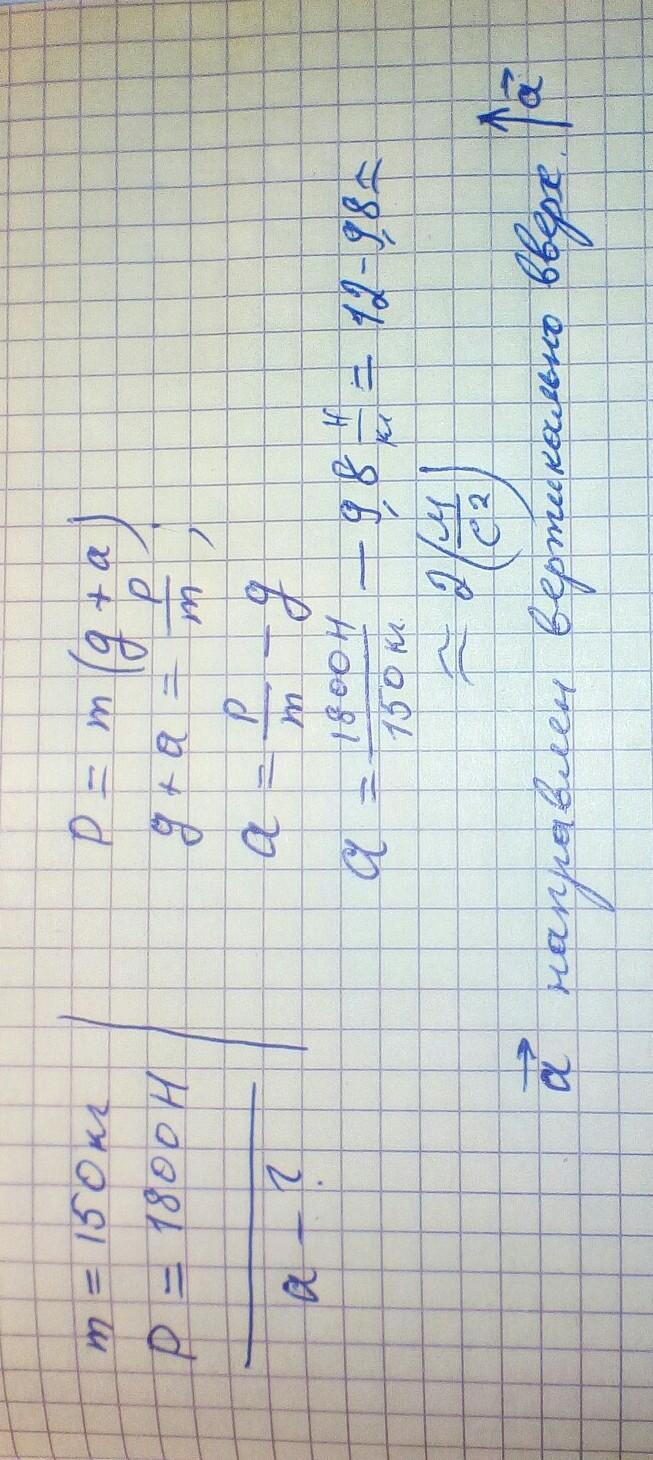 m = 150 кг
P = 1800 Н
a – ?
P = m (g + a);
g + a = P/m;
a = P/m – g
a = 1800Н/150 кг – 9,8 Н/кг = 12 – 9,8 ≈
≈ 2 (м/с²)
a⃗ направлен вертикально вверх. ↑a⃗